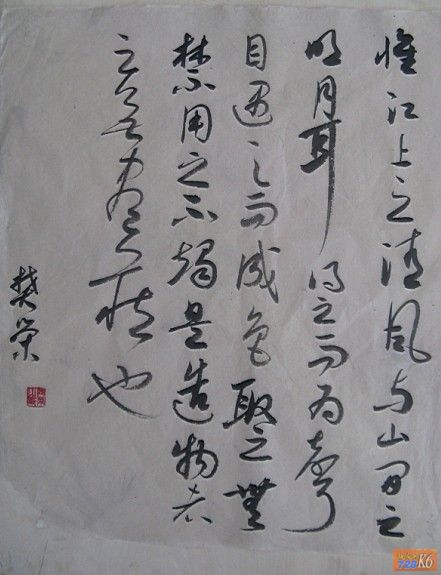 惟江上之清風与山间之
明月耳得之而为聲
目遇之而成色取之無
禁用之不竭是造物者
之無盡藏也
樊荣
728 K6